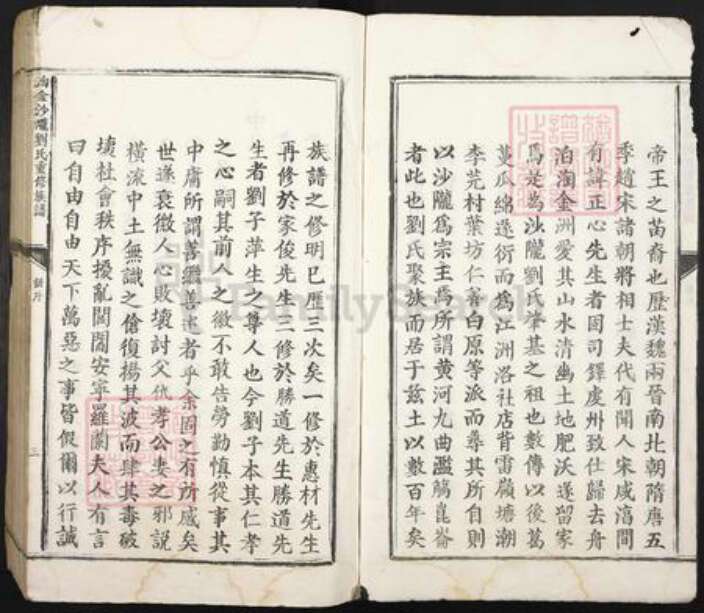 帝王之苗裔也歷漢魏兩晉南北朝隋唐五
季趙宋諸朝將相士夫代有聞人宋咸淳間
有諱正心先生者因司鐸虔州致仕歸去舟
泊淘金洲愛其山水清幽土地肥沃遂留家
焉是為沙隴劉氏肇基之祖也數傳以後葛
蔓瓜綿遂衍而為江洲洛社店背雷嶺塘潮
李芫村葉坊仁善白原等派而尋其所自則
以沙隴為宗主焉所謂黃河九曲濫觴崑崙
者此也劉氏聚族而居于茲土以數百年矣
族譜之修明已歷三次矣一修於惠材先生
再修於家俊先生三修於勝道先生勝道先
生者劉子萍生之尊人也今劉子本其仁孝
之心嗣其前人之徽不敢告勞勤慎從事其
中庸所謂善繼善述者乎余固之有所感矣
世遂衰微人心敗壞討父仇孝公妻之邪說
橫流中土無識之傖復楊其波而肆其毒破
壞社會秩序擾亂閭閻安寧羅蘭夫人有言
曰自由自由天下萬惡之事皆假爾以行誠
淘金沙隴劉氏重修族譜
三
FamilySearch